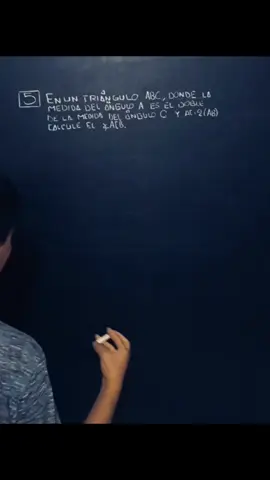 5 EN UN TRIÁNGULO ABC, DONDE LA
MEDIDA DEL ÁNGULO A ES EL DOBLE
DE LA MEDIDA DEL ÁNGULO C Y AC=2(AB)
CALCULE EL ∡ACB.